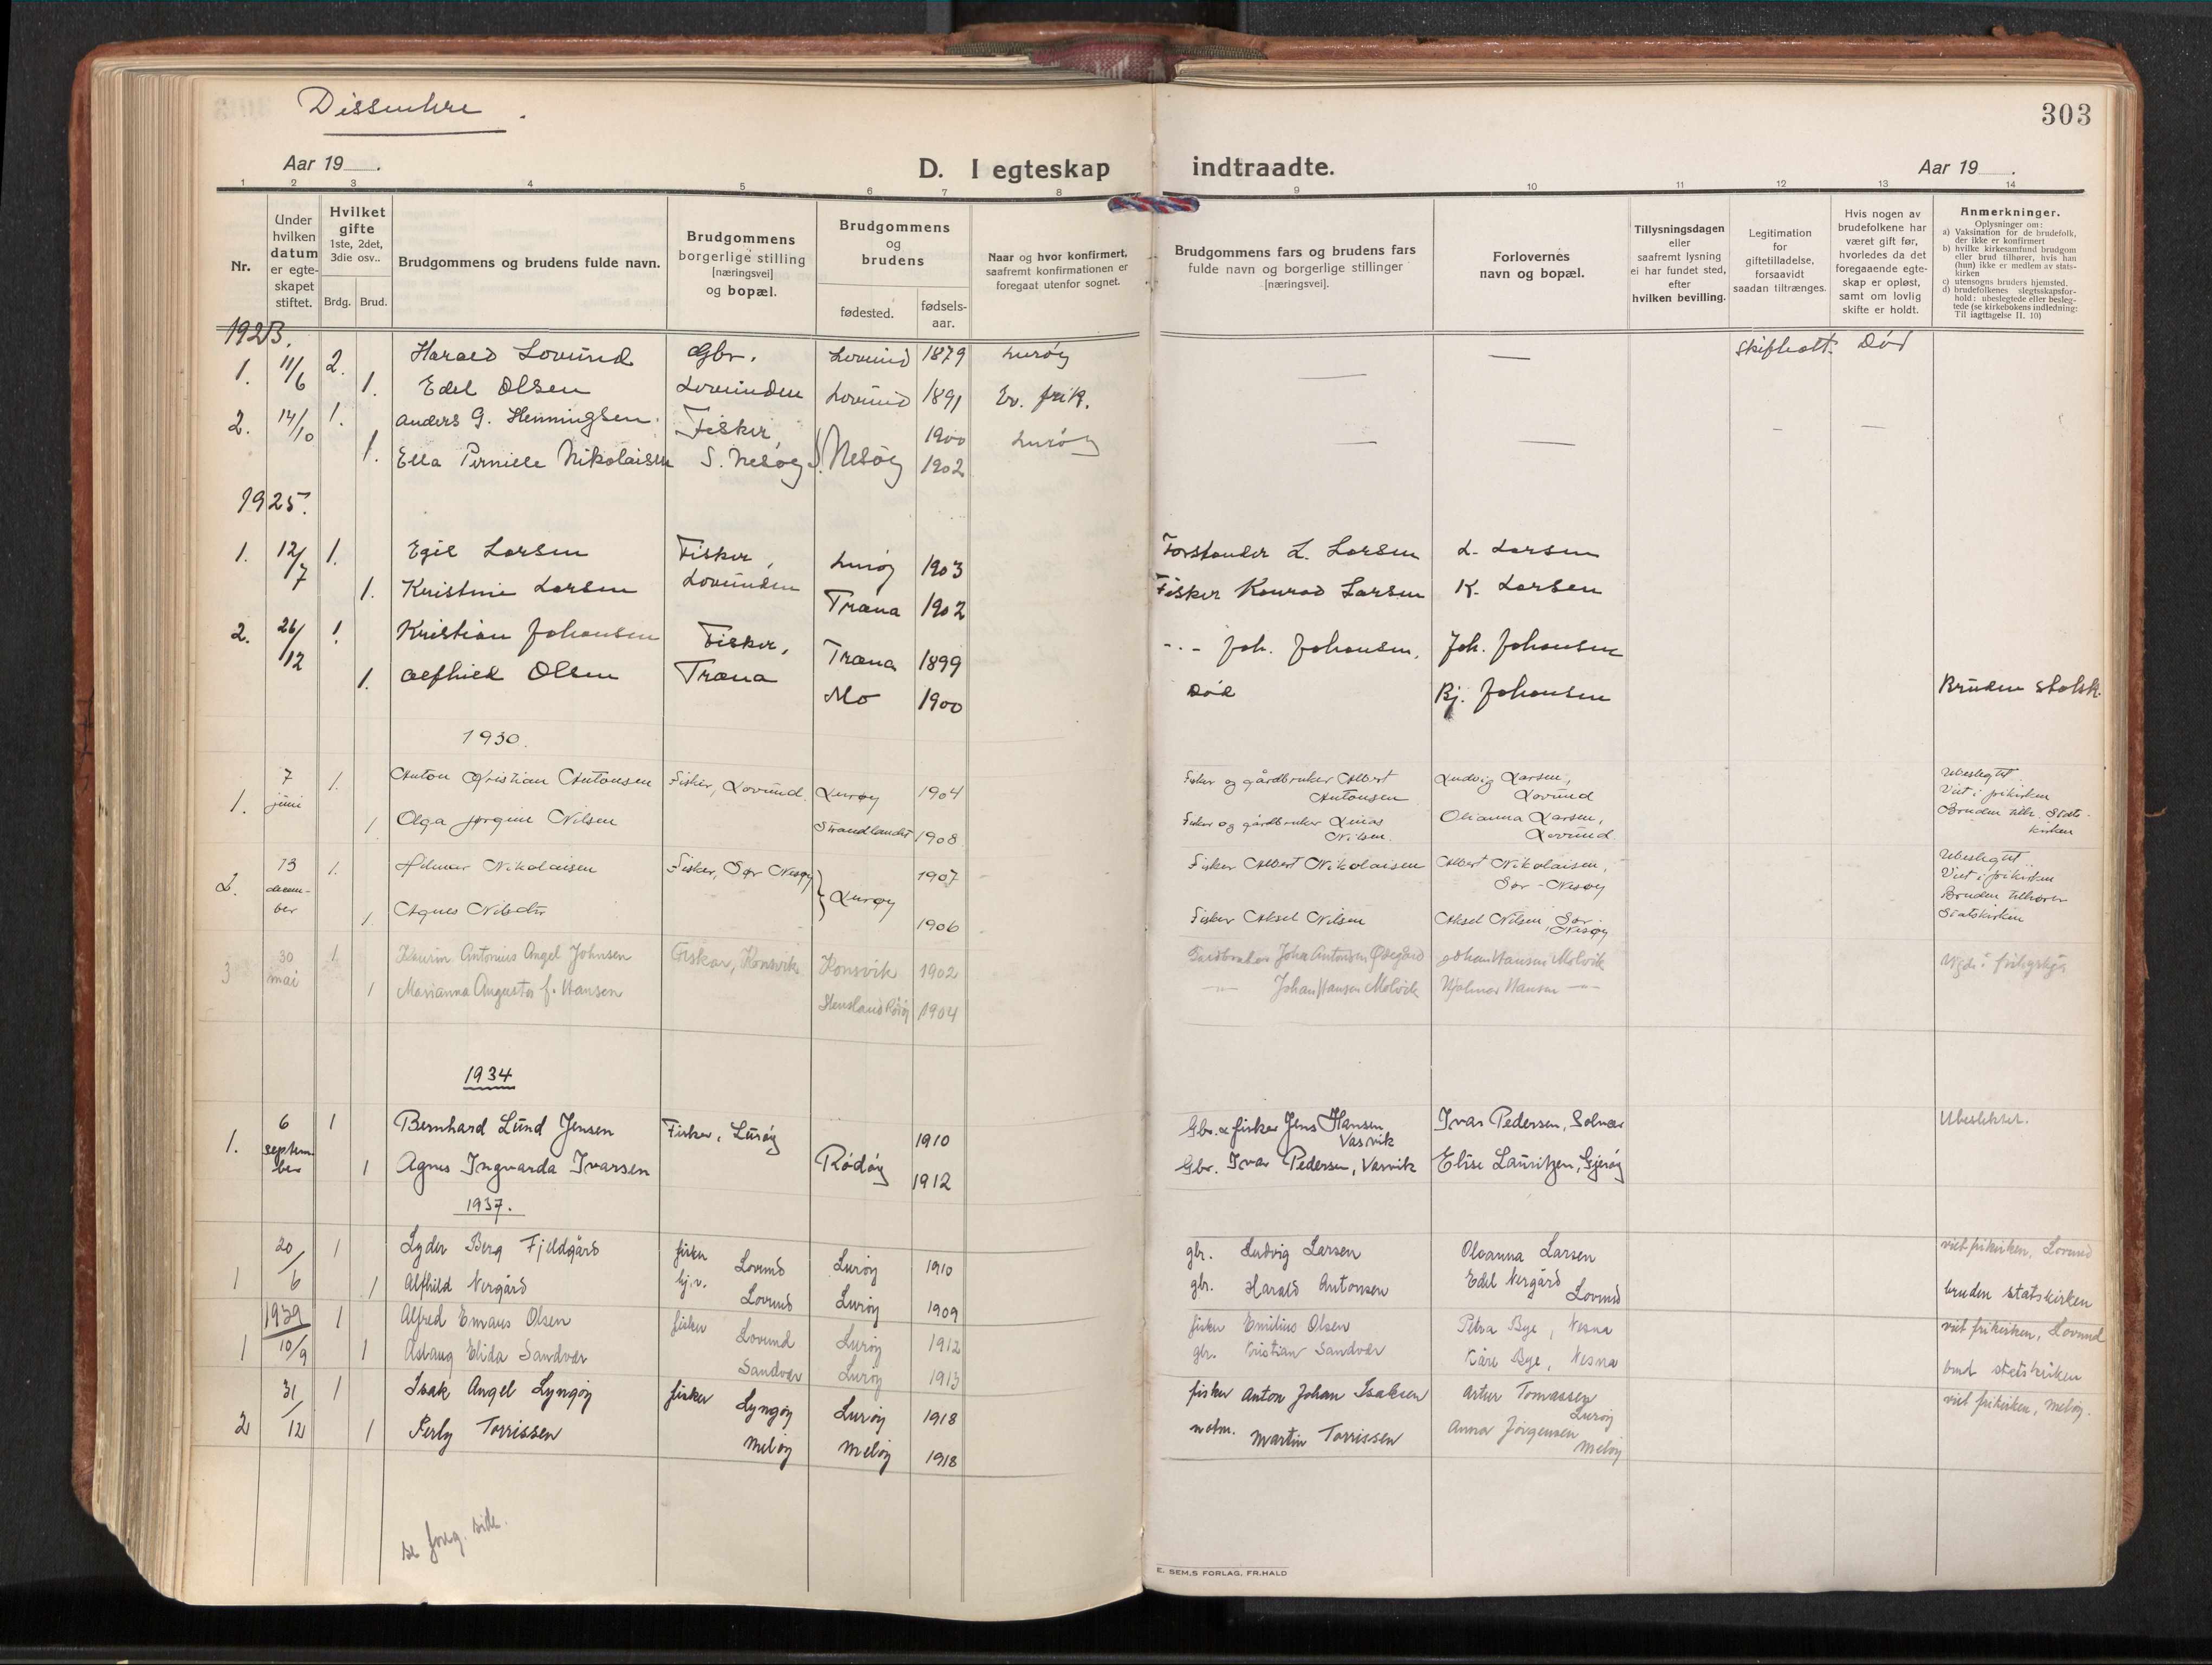 Dissentere.
303
Aar 19 .
D. I egteskap indtraadte.
Aar 19 .
1 2 3 4 5 6 7 8 9 10 11 12 13 14
Nr.
Under hvilken datum er egteskapet stiftet.
Hvilket gifte
1ste, 2det, 3die osv..
Brdg. Brud.
Brudgommens og brudens fulde navn.
Brudgommens borgerlige stilling [næringsvei] og bopæl.
Brudgommens og brudens
fødested.
fødselsaar.
Naar og hvor konfirmert, saafremt konfirmationen er foregaat utenfor sognet.
Brudgommens fars og brudens fars fulde navn og borgerlige stillinger [næringsvei].
Forlovernes navn og bopæl.
Tillysningsdagen eller saafremt lysning ei har fundet sted, efter hvilken bevilling.
Legitimation for giftetilladelse, forsaavidt saadan tiltrænges.
Hvis nogen av brudefolkene har været gift før, hvorledes da det foregaaende egteskap er opløst, samt om lovlig skifte er holdt.
Anmerkninger.
Oplysninger om:
a) Vaksination for de brudefolk, der ikke er konfirmert
b) hvilke kirkesamfund brudgom eller brud tilhører, hvis han (hun) ikke er medlem av statskirken
c) utensogns bruders hjemsted.
d) brudefolkenes slegtsskapsforhold: ubeslegtede eller beslegtede (se kirkebokens indledning: Til iagttagelse II. 10)
1923.
1. 11/6 2. Harald Lovund Gbr. Lovund 1879 Lurøy — — skifteatt. Død
1. Edel Olsen Lovunden Lovund 1891 Ev. frik.
2. 14/10 1. Anders G. Henningsen Fisker, 1900 Lurøy — — — —
1. Ella Pernille Nikolaisen S. Nesøy S. Nesøy 1902
1925.
1. 12/7 1. Egil Larsen Fisker, Lurøy 1903 Forstander L. Larsen L. Larsen
1. Kristine Larsen Lovunden Træna 1902 Fisker Konrad Larsen K. Larsen
2. 26/12 1. Kristian Johansen Fisker, Træna 1899 -..- Joh. Johansen, Joh. Johansen
1. Alfhild Olsen Træna Mo 1900 Død Bj. Johansen Bruden statsk.
1930.
1. 7 juni 1. Anton Kristian Antonsen Fisker, Lovund. Lurøy 1904 Fisker og gårdbruker Albert Antonsen Ludvig Larsen, Lovund Ubeslegtet. Viet i frikirken
1 Olga Jørgine Nilsen Strandlandet 1908 Fisker og gårdbruker Linas Nilsen. Olianna Larsen, Lovund. Bruden tilh. Statskirken
2. 13 december 1. Hilmar Nikolaisen Fisker, Sør Nesøy 1907 Fisker Albert Nikolaisen Albert Nikolaisen, Sør-Nesøy Ubeslegtet. Viet i frikirken
1 Agnes Nilsen Lurøy 1906 Fisker Aksel Nilsen Aksel Nilsen, Sør-Nesøy Bruden tilhører Statskirken
3 30 mai 1 Antonius Angel Johnsen Fisker, Konsvik Konsvik 1902 Gårdbruker Johan Antonsen Johan Hansen Molvik
1 Marianna Augusta f. Hansen 1904 -"- Johan Hansen Molvik Hjalmar Hansen -"-
1934
1. 6 september 1 Bernhard Lund Jensen Fisker, Lurøy 1910 Gbr. & fisker Jens Hansen Vasvik Ivar Pedersen, Solvær Ubeslektet.
1 Agnes Ingvarda Ivarsen Rødøy 1912 Gbr. Ivar Pedersen, Vasvik Elise Lauritzen, Gjerøy
1937.
1 20/6 1 Lyder Berg Fjeldgård fisker Lovund Lurøy 1910 gbr. Ludvig Larsen Oleanna Larsen viet frikirken, Lovund
1 Alfhild Nergård hj.v. Lovund Lurøy 1909 gbr. Harald Antonsen Edel Nergård Lovund bruden statskirken
1939
1 10/9 1 Alfred Emaus Olsen fisker Lovund Lurøy 1912 fisker Emilius Olsen Petra Bye, Nesna viet frikirken, Lovund
1 Aslaug Elida Sandvær Sandvær Lurøy 1913 gbr. Kristian Sandvær Kåre Bye, Nesna brud statskirken
2 31/12 1 Isak Angel Lyngøy fisker Lyngøy Lurøy 1918 fisker Anton Johan Isaksen Artur Tomassen Lurøy viet frikirken, Meløy.
1 Perly Torrissen Meløy Meløy 1918 Martin Torrissen Anna Jørgensen Meløy
se foreg. side.
E. SEM,S FORLAG, FR.HALD